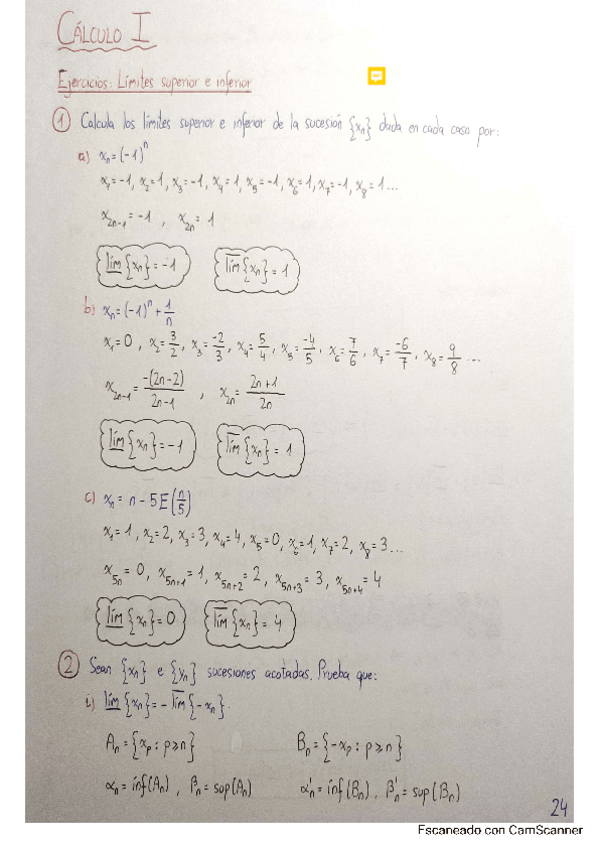 CÁLCULO I
Ejercicios: Límites superior e inferior
① Calcula los límites superior e inferior de la sucesión {xₙ} dada en cada caso por:
a) xₙ = (-1)ⁿ
x₁ = -1, x₂ = 1, x₃ = -1, x₄ = 1, x₅ = -1, x₆ = 1, x₇ = -1, x₈ = 1...
x₂ₙ₋₁ = -1 , x₂ₙ = 1
l̲í̲m̲ {xₙ} = -1 l̅i̅m̅ {xₙ} = 1
b) xₙ = (-1)ⁿ + 1/n
x₁ = 0 , x₂ = 3/2 , x₃ = -2/3 , x₄ = 5/4 , x₅ = -4/5 , x₆ = 7/6 , x₇ = -6/7 , x₈ = 9/8 ...
x₂ₙ₋₁ = -(2n-2)/(2n-1) , x₂ₙ = (2n+1)/2n
l̲í̲m̲ {xₙ} = -1 l̅i̅m̅ {xₙ} = 1
c) xₙ = n - 5E(n/5)
x₁ = 1, x₂ = 2, x₃ = 3, x₄ = 4, x₅ = 0, x₆ = 1, x₇ = 2, x₈ = 3...
x₅ₙ = 0, x₅ₙ₊₁ = 1, x₅ₙ₊₂ = 2, x₅ₙ₊₃ = 3, x₅ₙ₊₄ = 4
l̲í̲m̲ {xₙ} = 0 l̅i̅m̅ {xₙ} = 4
② Sean {xₙ} e {yₙ} sucesiones acotadas. Prueba que:
i) l̲í̲m̲ {xₙ} = - l̅i̅m̅ {-xₙ}.
Aₙ = {xₚ : p ≥ n} Bₙ = {-xₚ : p ≥ n}
αₙ = ínf(Aₙ) , βₙ = sup(Aₙ) α'ₙ = ínf(Bₙ) , β'ₙ = sup(Bₙ)
24
Escaneado con CamScanner